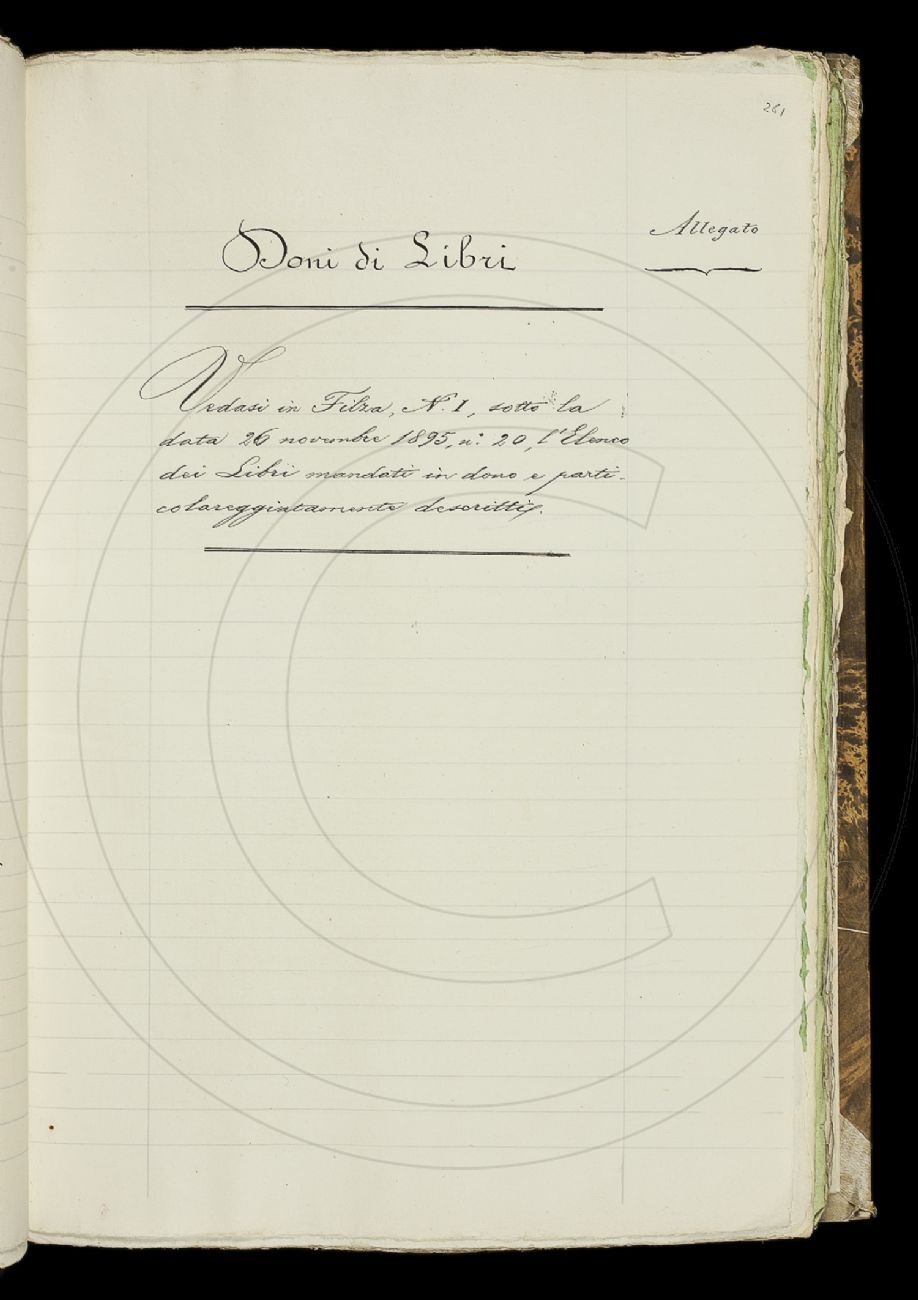 261
Allegato
Doni di Libri
Vedasi in Filza, N. 1, sotto la
data 26 novembre 1895, n.° 20, l'Elenco
dei Libri mandati in dono e parti-
colareggiatamente descritti.